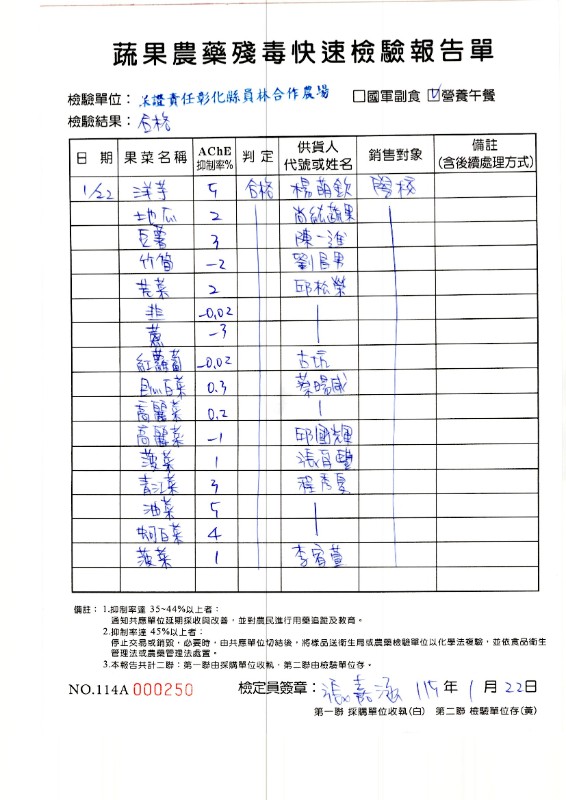 蔬果農藥殘毒快速檢驗報告單
檢驗單位：保證責任彰化縣員林合作農場 □國軍副食 ☑營養午餐
檢驗結果：合格
日期 果菜名稱 AChE抑制率% 判定 供貨人代號或姓名 銷售對象 備註(含後續處理方式)
1/22 洋芋 5 合格 楊萌欽 學校
地瓜 2 尚紘蔬果
豆薯 3 陳一進
竹筍 -2 劉昌男
芫菜 2 邱松榮
韭 -0.02
蔥 -3
紅蘿蔔 -0.02 古坑
包心白菜 0.3 蔡陽成
高麗菜 0.2
高麗菜 -1 邱國輝
菠菜 1
青江菜 3 程秀夏
油菜 5
蚵白菜 4
菠菜 1 李宥萱
備註：1.抑制率達 35~44%以上者：
通知共應單位延期採收與改善，並對農民進行用藥追蹤及教育。
2.抑制率達 45%以上者：
停止交易或銷毀，必要時，由共應單位切結後，將樣品送衛生局或農藥檢驗單位以化學法複驗，並依食品衛生
管理法或農藥管理法處置。
3.本報告共計二聯：第一聯由採購單位收執，第二聯由檢驗單位存。
NO.114A 000250 檢定員簽章：張嘉涵 115年 1月 22日
第一聯 採購單位收執(白) 第二聯 檢驗單位存(黃)